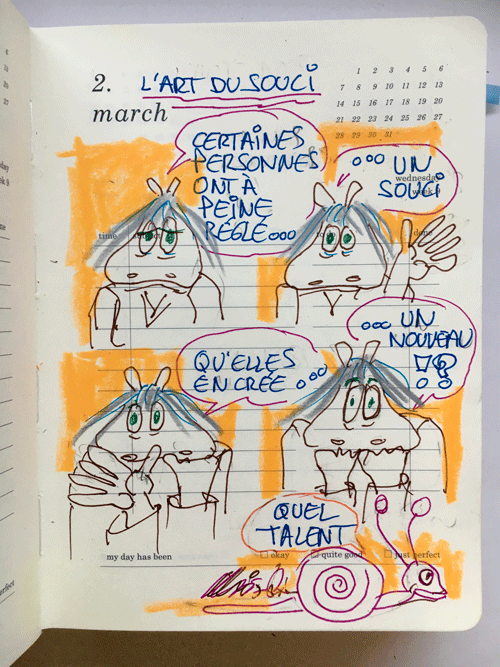 2. L'ART DU SOUCI
march
1 2 3 4 5 6
7 8 9 10 11 12 13
14 15 16 17 18 19 20
21 22 23 24 25 26 27
28 29 30 31
CERTAINES
PERSONNES
ONT À
PEINE
RÉGLÉ...
wednesday
week 9
... UN
SOUCI
time
done
QU'ELLES
EN CRÉE...
... UN
NOUVEAU
!?
QUEL
TALENT
my day has been
okay quite good just perfect